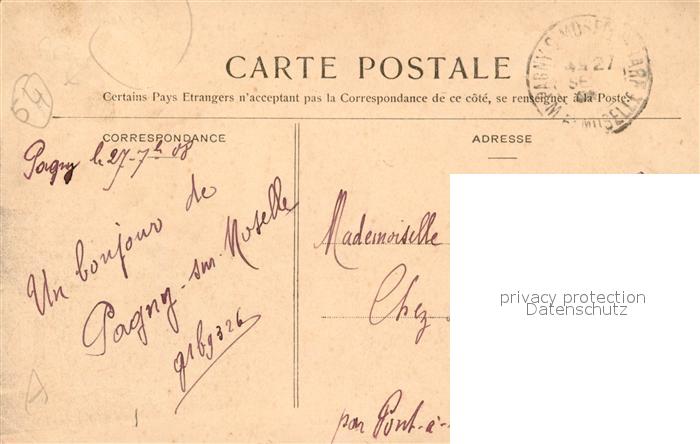 54
CARTE POSTALE
Certains Pays Etrangers n'acceptent pas la Correspondance de ce côté, se renseigner à la Poste.
CORRESPONDANCE
Pagny le 27-7bre 08
Un bonjour de
Pagny-sur-Moselle
ADRESSE
Mademoiselle
Chez
par Pont-à-
privacy protection
Datenschutz